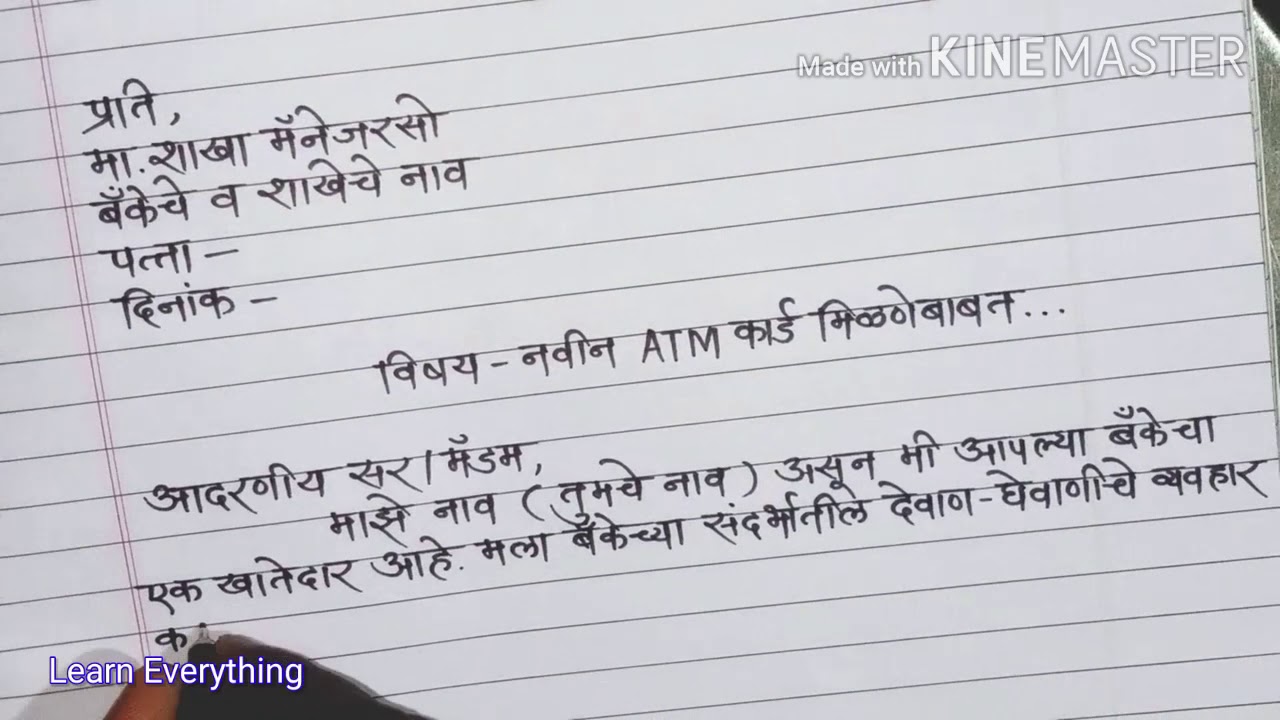 Made with KINEMASTER
प्रति,
मा. शाखा मॅनेजरसो
बँकेचे व शाखेचे नाव
पत्ता -
दिनांक -
विषय - नवीन ATM कार्ड मिळणेबाबत...
आदरणीय सर / मॅडम,
माझे नाव ( तुमचे नाव ) असून मी आपल्या बँकेचा
एक खातेदार आहे. मला बँकेच्या संदर्भातील देवाण-घेवाणीचे व्यवहार
क
Learn Everything